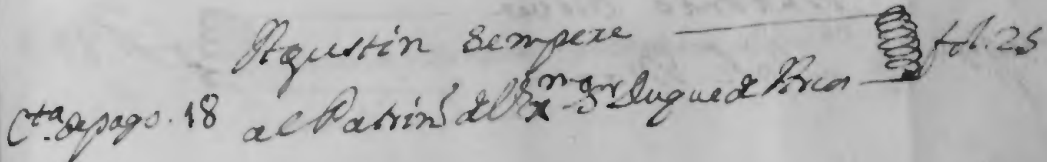 Agustin Sempere fol. 25
Cta de pago. 18 al Patrim.l del Exmo Sr Duque de Arcos